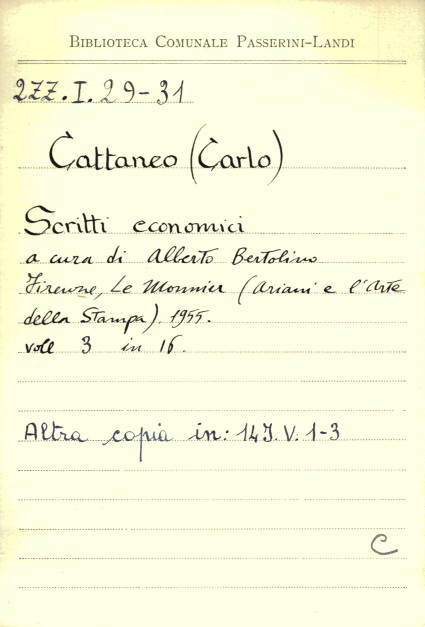 BIBLIOTECA COMUNALE PASSERINI-LANDI
2ZZ.I.29-31
Cattaneo (Carlo)
Scritti economici
a cura di Alberto Bertolino
Firenze, Le Monnier (Ariani e l'Arte
della Stampa). 1955.
voll 3 in 16.
Altra copia in: 14J.V.1-3
C